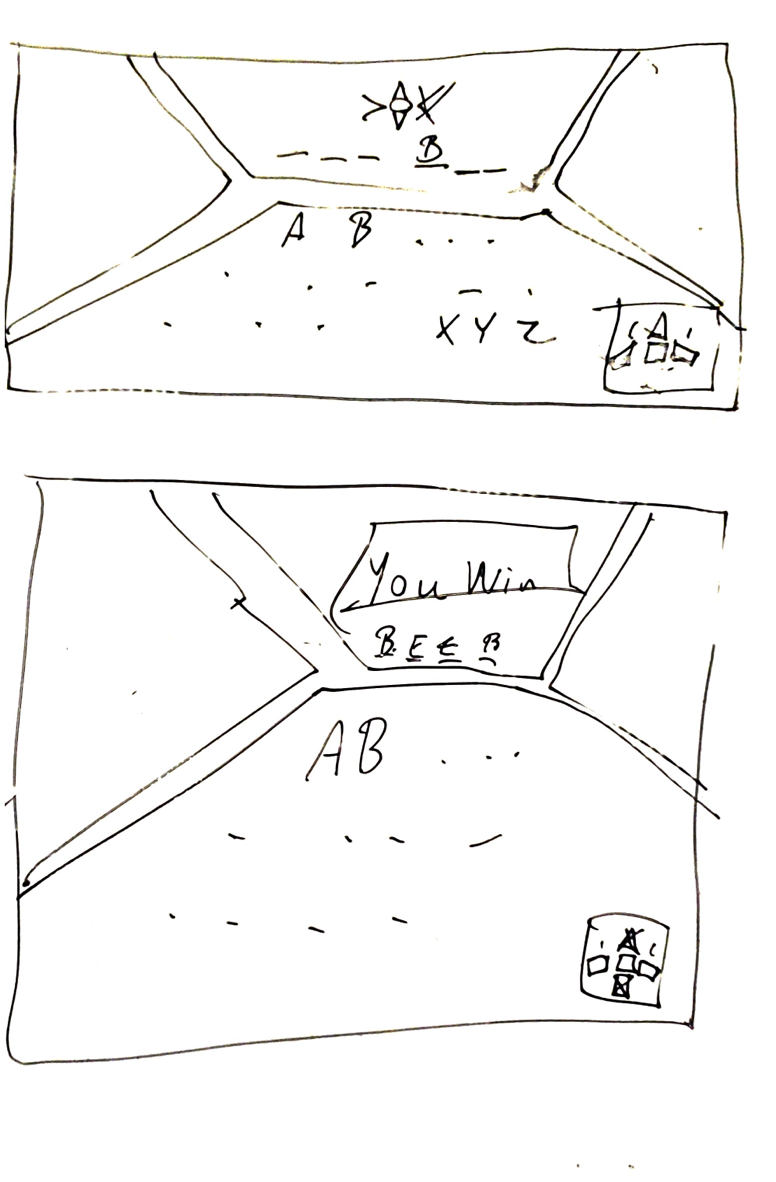 B
A B . . .
X Y Z
You Win
B E E B
A B . . .